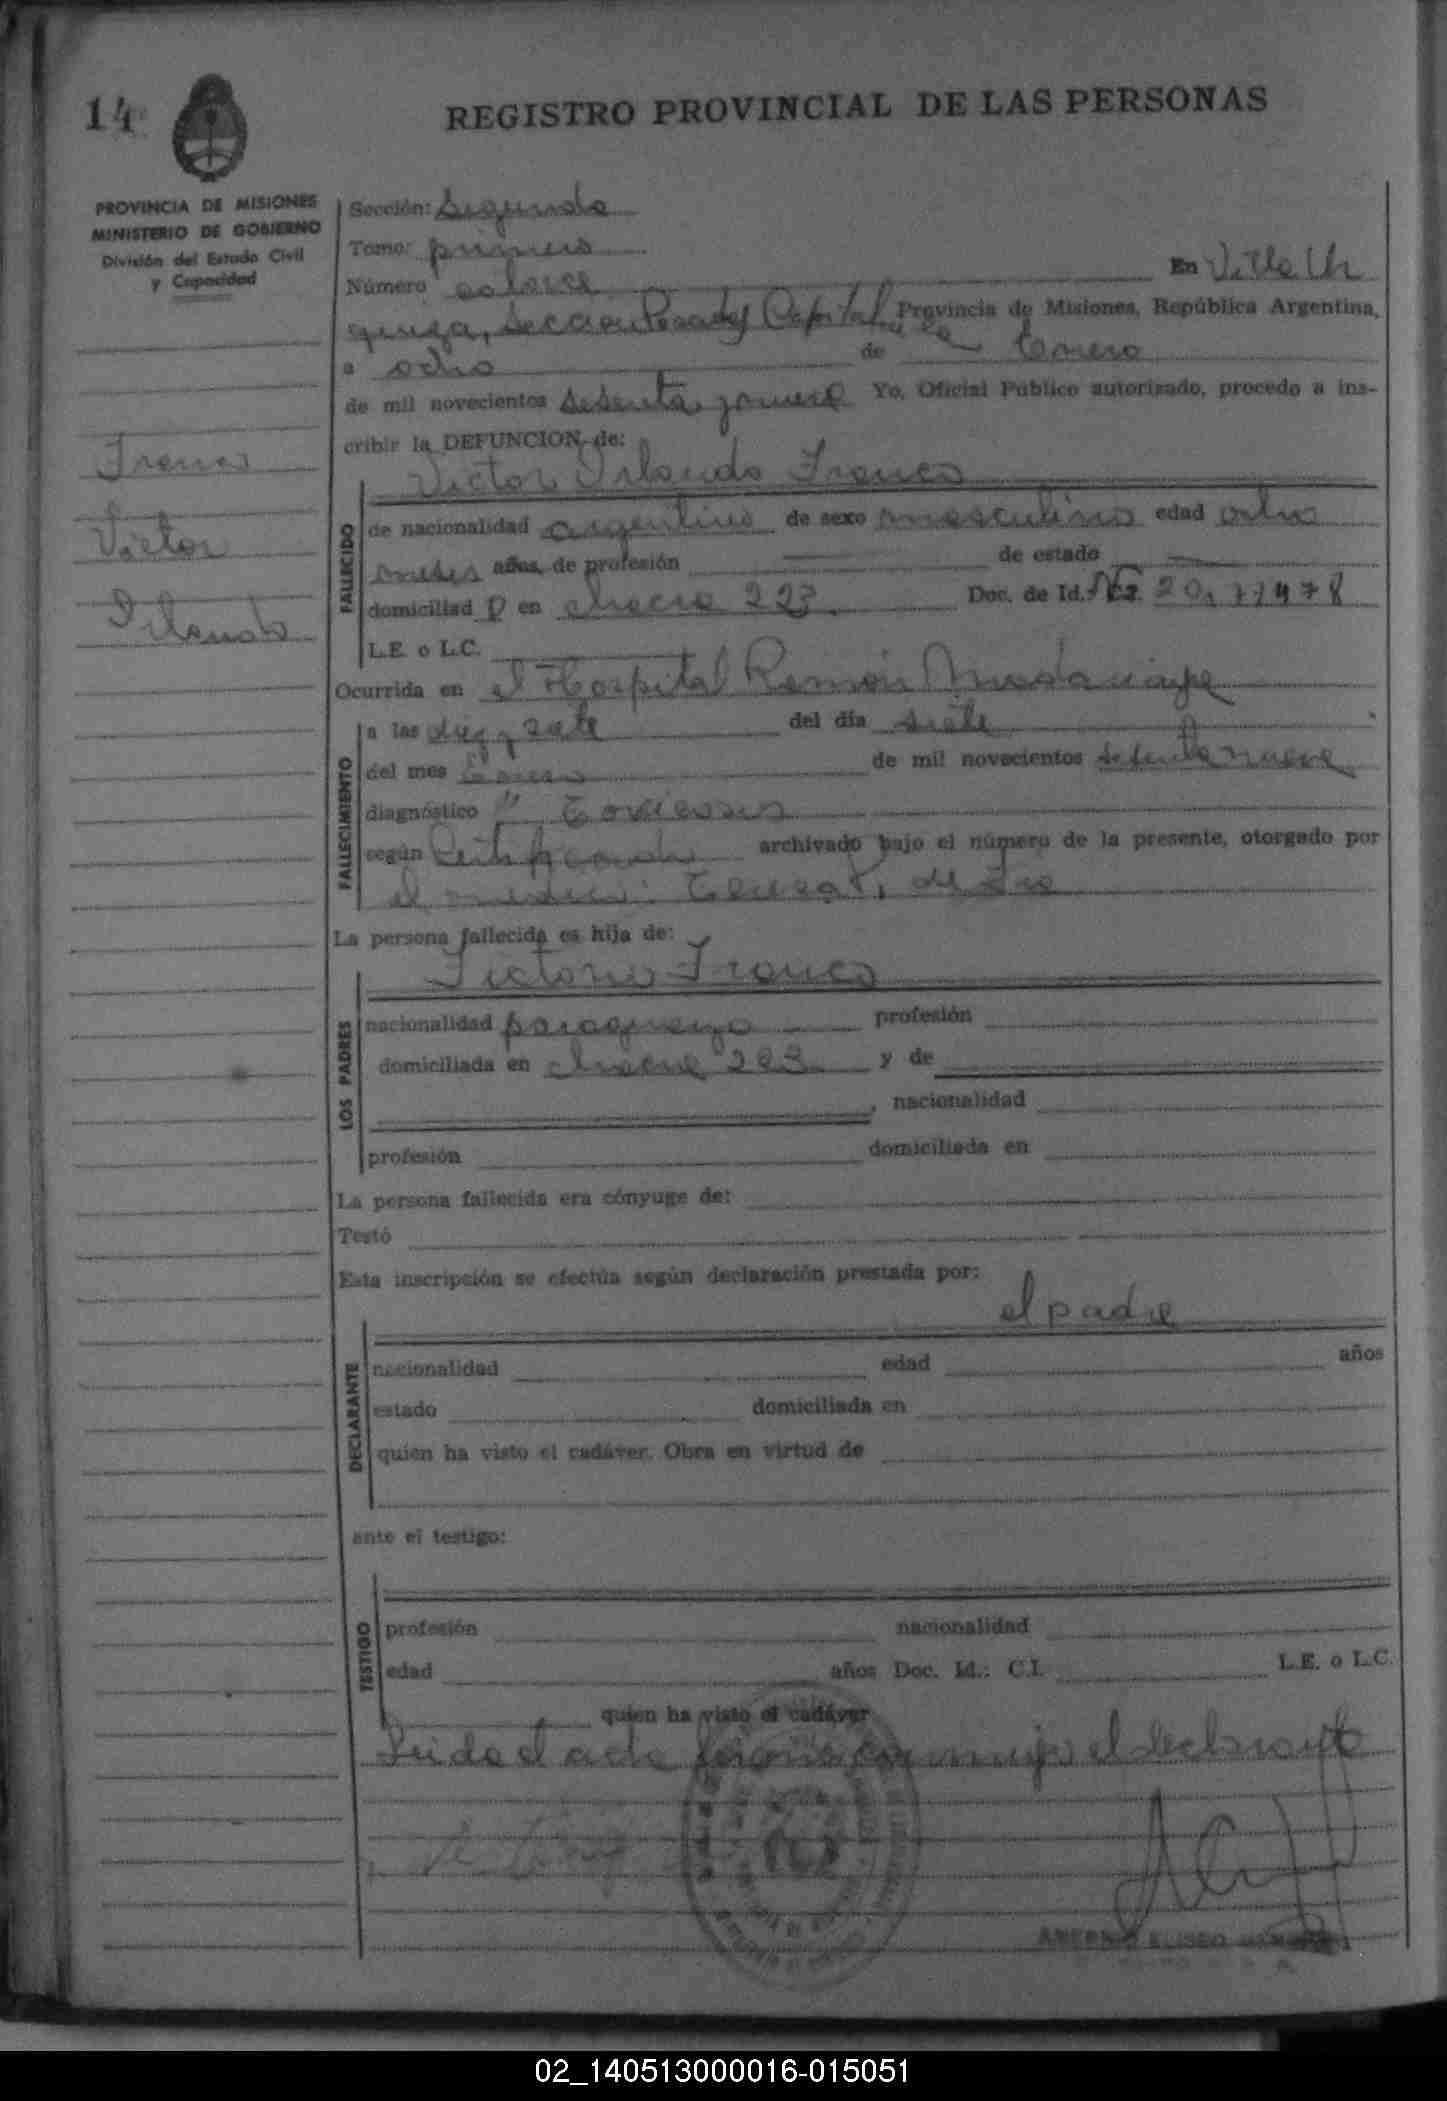 14
REGISTRO PROVINCIAL DE LAS PERSONAS
PROVINCIA DE MISIONES
MINISTERIO DE GOBIERNO
División del Estado Civil
y Capacidad
Franco
Victor
Orlando
Sección: Segunda
Tomo: primero
Número catorce En Villa Ur
quiza, Sección Posadas Capital Provincia de Misiones, República Argentina,
a ocho de Enero
de mil novecientos setenta y nueve Yo, Oficial Público autorizado, procedo a ins-
cribir la DEFUNCION de:
Victor Orlando Franco
FALLECIDO
de nacionalidad argentino de sexo masculino edad ocho
meses años, de profesión de estado
domiciliad o en chacra 223 Doc. de Id.
L.E. o L.C.
Ocurrida en el Hospital Ramón Madariaga
FALLECIMIENTO
a las diez y siete del día siete
del mes Enero de mil novecientos setenta nueve
diagnóstico " Toxicosis
según Certificado archivado bajo el número de la presente, otorgado por
el medico:
La persona fallecida es hija de:
Victorio Franco
LOS PADRES
nacionalidad paraguayo profesión
domiciliada en chacra 223 y de
, nacionalidad
profesión domiciliada en
La persona fallecida era cónyuge de:
Testó
Esta inscripción se efectúa según declaración prestada por:
el padre
DECLARANTE
nacionalidad edad años
estado domiciliada en
quien ha visto el cadáver. Obra en virtud de
ante el testigo:
TESTIGO
profesión nacionalidad
edad años Doc. Id.: C.I. L.E. o L.C.
quien ha visto el cadáver
Leida el acta firma conmigo el declarante
ELISEO
02_140513000016-015051